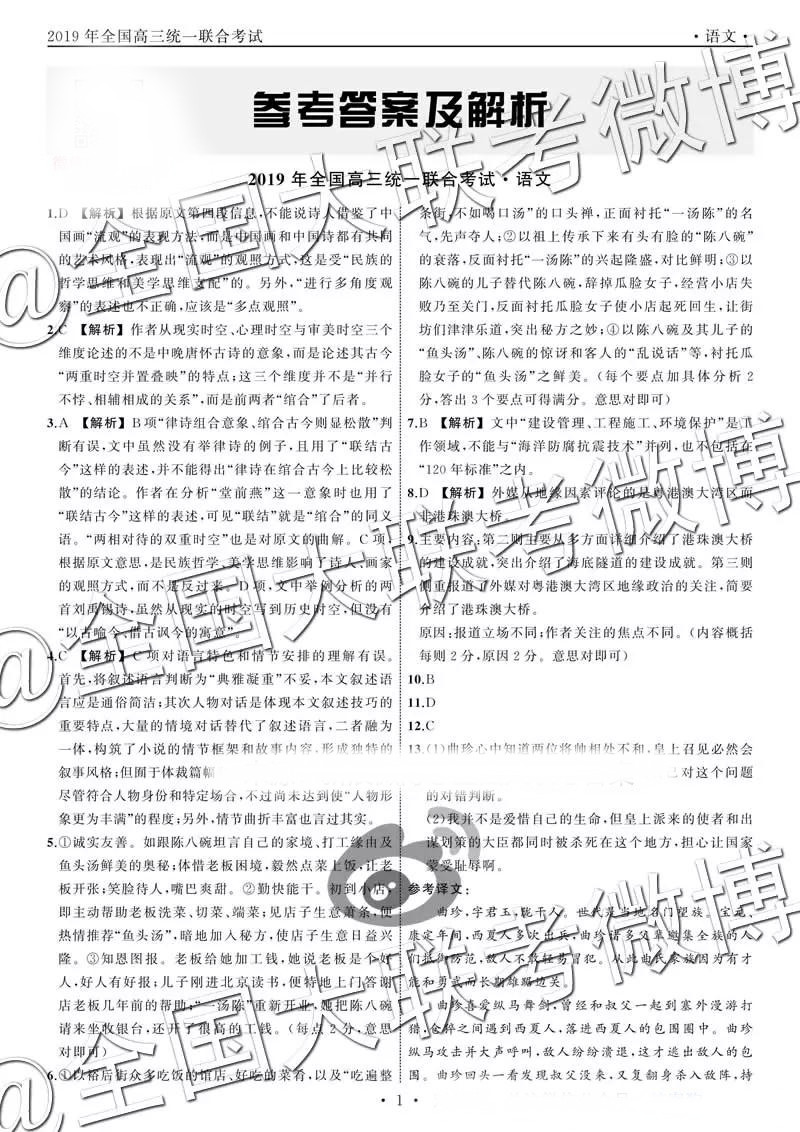 2019 年全国高三统一联合考试
·语文·
参考答案及解析
2019 年全国高三统一联合考试·语文
1.D 【解析】根据原文第四段信息,不能说诗人借鉴了中
国画“流观”的表现方法,而是中国画和中国诗都有共同
的艺术风格,表现出“流观”的观照方式,这是受“民族的
哲学思维和美学思维支配”的。另外,“进行多角度观
察”的表述也不正确,应该是“多点观照”。
2.C 【解析】作者从现实时空、心理时空与审美时空三个
维度论述的不是中晚唐怀古诗的意象,而是论述其古今
“两重时空并置叠映”的特点;这三个维度并不是“并行
不悖、相辅相成的关系”,而是前两者“绾合”了后者。
3.A 【解析】B项“律诗组合意象、绾合古今则显松散”判
断有误,文中虽然没有举律诗的例子,且用了“联结古
今”的表述,并不能得出“律诗在绾合古今上比较松
散”的结论。作者在分析“堂前燕”这一意象时也用了
“联结古今”这样的表述,可见“联结”就是“绾合”的同义
语。“两相对待的双重时空”也是对原文的曲解。C 项,
根据原文意思,是民族哲学、美学思维影响了诗人、画家
的观照方式,而不是反过来。D项,文中举例分析的两
首刘禹锡诗,虽然从现实的时空写到历史时空,但没有
“以古喻今、借古讽今的寓意”。
4.C 【解析】C 项对语言特色和情节安排的理解有误。
首先,将叙述语言判断为“典雅凝重”不妥,本文叙述语
言应是通俗简洁;其次人物对话是体现本文叙述技巧的
重要特点,大量的情境对话替代了叙述语言,二者融为
一体,构筑了小说的情节框架和故事内容,形成独特的
叙事风格;但囿于体裁篇幅
尽管符合人物身份和特定场合,不过尚未达到使“人物形
象更为丰满”的程度;另外,情节曲折丰富也言过其实。
5.①诚实友善。如跟陈八碗坦言自己的家境、打工缘由及
鱼头汤鲜美的奥秘;体惜老板困境,毅然点菜上饭,让老
板开张;笑脸待人,嘴巴爽甜。②勤快能干。初到小店,
即主动帮助老板洗菜、切菜、端菜;见店子生意萧条,便
热情推荐“鱼头汤”,暗地加入秘方,使店子生意日益兴
隆。③知恩图报。老板给她加工钱,她说老板是个好
人,好人有好报;儿子刚进北京读书,便特地上门答谢
店老板几年前的帮助;“一汤陈”重新开业,她把陈八碗
请来坐收银台,还开了很高的工钱。(每点2分,意思
对即可)
6.①以裕后街众多吃饭的馆店、好吃的菜肴,以及“吃遍整
条街,不如喝口汤”的口头禅,正面衬托“一汤陈”的名
气,先声夺人;②以祖上传承下来有头有脸的“陈八碗”
的衰落,反面衬托“一汤陈”的兴起隆盛,对比鲜明;③以
陈八碗的儿子替代陈八碗,辞掉瓜脸女子,经营小店失
败乃至关门,反面衬托瓜脸女子使小店起死回生,让街
坊们津津乐道,突出秘方之妙;④以陈八碗及其儿子的
“鱼头汤”、陈八碗的惊讶和客人的“乱说话”等,衬托瓜
脸女子的“鱼头汤”之鲜美。(每个要点加具体分析 2
分,答出 3 个要点可得满分。意思对即可)
7.B 【解析】文中“建设管理、工程施工、环境保护”是工
作领域,不能与“海洋防腐抗震技术”并列,也不包括在
“120 年标准”之内。
8.D 【解析】外媒从地缘因素评论的是粤港澳大湾区而
非港珠澳大桥。
9.主要内容:第二则主要从多方面详细介绍了港珠澳大桥
的建设成就,突出介绍了海底隧道的建设成就。第三则
侧重报道了外媒对粤港澳大湾区地缘政治的关注,简要
介绍了港珠澳大桥。
原因:报道立场不同;作者关注的焦点不同。(内容概括
每则 2 分,原因 2 分。意思对即可)
10.B
11.D
12.C
13.(1)曲珍心中知道两位将帅相处不和,皇上召见必然会
对这个问题
的对错判断。
(2)我并不是爱惜自己的生命,但皇上派来的使者和出
谋划策的大臣都同时被杀死在这个地方,担心让国家
蒙受耻辱啊。
参考译文:
曲珍,字君玉,陇干人。世代是当地名门望族。宝元、
康定年间,西夏人多次出兵,曲珍诸多父辈邀集全族的人
们抵御防范,敌人不敢轻易冒犯。从此曲氏家族因为有才
能和勇武而长期雄踞边关。
曲珍喜爱纵马舞剑,曾经和叔父一起到塞外漫游打
猎,仓猝之间遇到西夏人,落进西夏人的包围圈中。曲珍
纵马攻击并大声呼叫,敌人纷纷溃退,这才逃出敌人的包
围。曲珍回头一看发现叔父没来,又复翻身杀入敌阵,持
·1·
@全国大联考微博
@全国大联考微博
@全国大联考微博